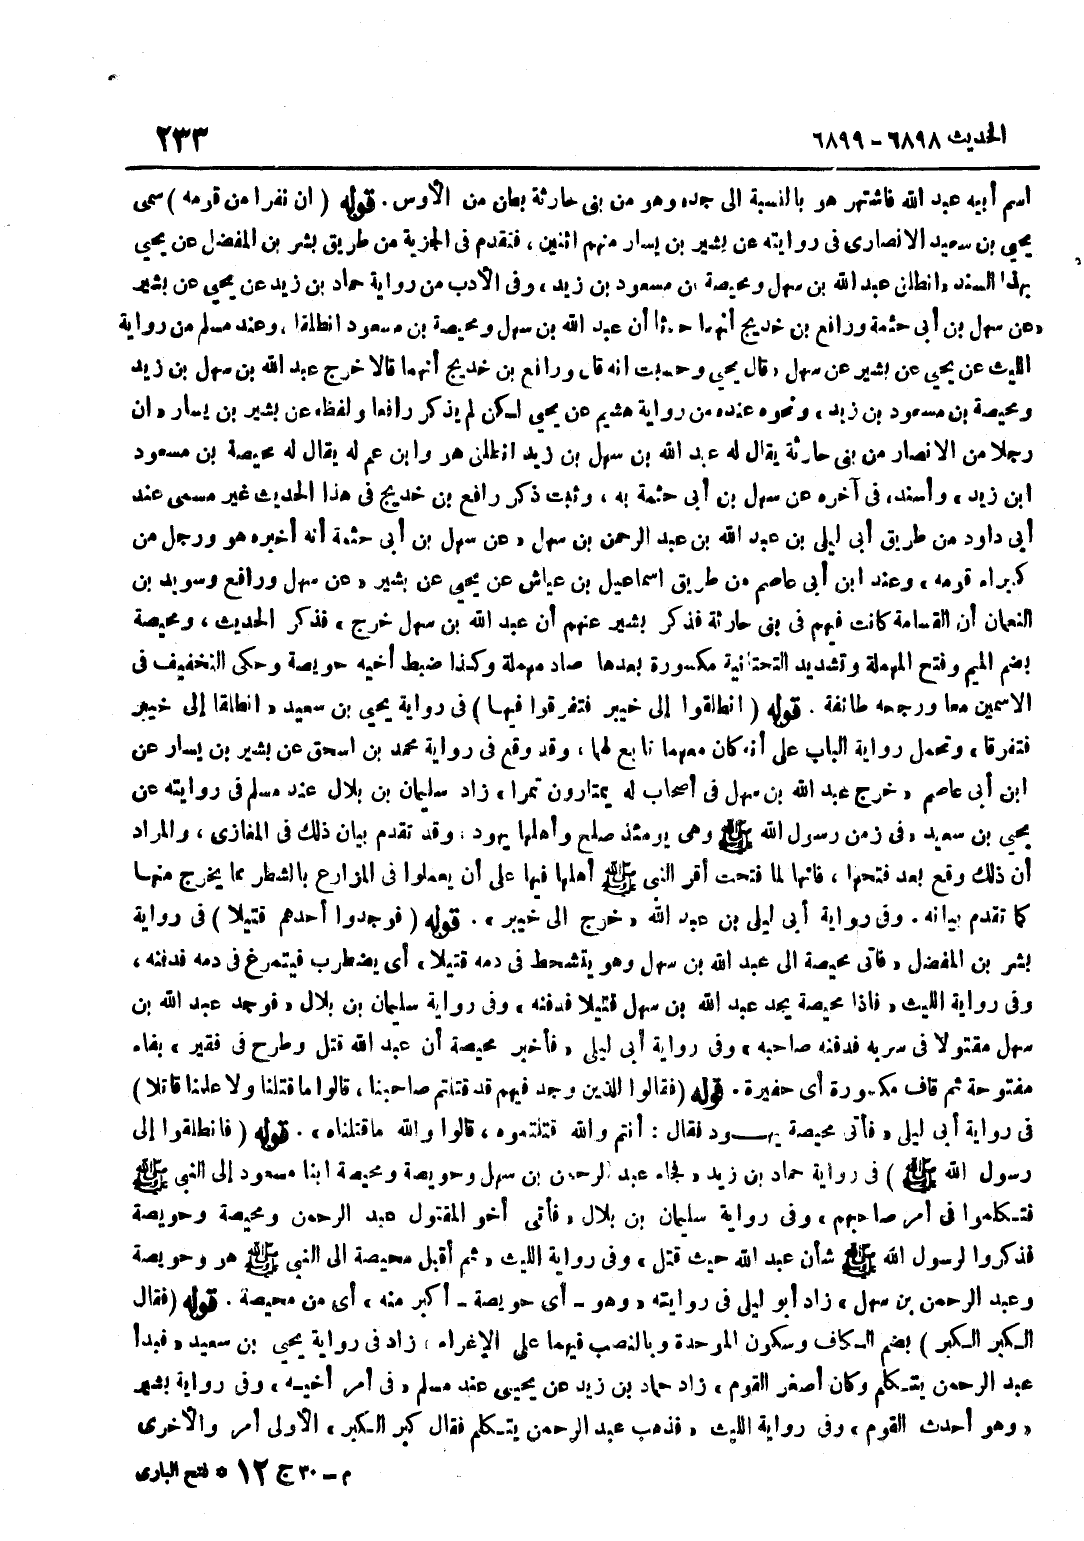 الحديث ٦٨٩٨ - ٦٨٩٩
٢٣٣
اسم أبيه عبد الله فاشتهر هو بالنسبة الى جده وهو من بنى حارثة بطن من الأوس . قوله ( ان نفرا من قومه ) سمى
يحيى بن سعيد الانصارى فى روايته عن بشير بن يسار منهم اثنين ، فتقدم فى الجزية من طريق بشر بن المفضل عن يحيى
بهذا السند « انطلق عبد الله بن سهل ومحيصة بن مسعود بن زيد ، وفى الأدب من رواية حماد بن زيد عن يحيى عن بشير
« عن سهل بن أبى حثمة ورافع بن خديج أنهما حدثا أن عبد الله بن سهل ومحيصة بن مسعود انطلقا ، وعند مسلم من رواية
الليث عن يحيى عن بشير عن سهل « قال يحيى وحسبت انه قال ورافع بن خديج أنهما قالا خرج عبد الله بن سهل بن زيد
ومحيصة بن مسعود بن زيد ، ونحوه عنده من رواية هشيم عن يحيى لكن لم يذكر رافعا ولفظه عن بشير بن يسار « ان
رجلا من الانصار من بنى حارثة يقال له عبد الله بن سهل بن زيد انطلق هو وابن عم له يقال له محيصة بن مسعود
ابن زيد » وأسنده فى آخره عن سهل بن أبى حثمة به ، وثبت ذكر رافع بن خديج فى هذا الحديث غير مسمى عند
أبى داود من طريق أبى ليلى بن عبد الله بن عبد الرحمن بن سهل « عن سهل بن أبى حثمة أنه أخبره هو ورجل من
كبراء قومه ، وعند ابن أبى عاصم من طريق اسماعيل بن عياش عن يحيى عن بشير « عن سهل ورافع وسويد بن
النعمان أن القسامة كانت فيهم فى بنى حارثة فذكر بشير عنهم أن عبد الله بن سهل خرج » فذكر الحديث ، ومحيصة
بضم الميم وفتح المهملة وتشديد التحتانية مكسورة بعدها صاد مهملة وكذا ضبط أخيه حويصة وحكى التخفيف فى
الاسمين معا ورجحه طائفة . قوله ( انطلقوا إلى خيبر فتفرقوا فيها ) فى رواية يحيى بن سعيد « انطلقا إلى خيبر
فتفرقا ، وتحمل رواية الباب على أنه كان معهما تابع لهما ، وقد وقع فى رواية محمد بن اسحق عن بشير بن يسار عن
ابن أبى عاصم « خرج عبد الله بن سهل فى أصحاب له يمتارون تمرا ، زاد سليمان بن بلال عند مسلم فى روايته عن
يحيى بن سعيد « فى زمن رسول الله ﷺ وهى يومئذ صلح وأهلها يهود ، وقد تقدم بيان ذلك فى المغازى ، والمراد
أن ذلك وقع بعد فتحها ، فانها لما فتحت أقر النبى ﷺ أهلها فيها على أن يعملوا فى المزارع بالشطر مما يخرج منها
كما تقدم بيانه . وفى رواية أبى ليلى بن عبد الله « خرج الى خيبر » . قوله ( فوجدوا أحدهم قتيلا ) فى رواية
بشر بن المفضل « فأتى محيصة الى عبد الله بن سهل وهو يتشحط فى دمه قتيلا ، أى يضطرب فيتمرغ فى دمه فدفنه ،
وفى رواية الليث « فاذا محيصة يجد عبد الله بن سهل قتيلا فدفنه » وفى رواية سليمان بن بلال « فوجد عبد الله بن
سهل مقتولا فى سربه فدفنه صاحبه » وفى رواية أبى ليلى « فأخبر محيصة أن عبد الله قتل وطرح فى فقير » بفاء
مفتوحة ثم قاف مكسورة أى حفيرة . قوله (فقالوا الذين وجد فيهم قد قتلتم صاحبنا ، قالوا ما قتلنا ولا علمنا قاتلا )
فى رواية أبى ليلى « فأتى محيصة يهـــود فقال : أنتم والله قتلتموه ، قالوا والله ماقتلناه » . قوله ( فانطلقوا إلى
رسول الله ﷺ ) فى رواية حماد بن زيد « فجاء عبد الرحمن بن سهل وحويصة ومحيصة ابنا مسعود إلى النبى ﷺ
فتكلموا فى أمر صاحبهم » وفى رواية سليمان بن بلال « فأتى أخو المقتول عبد الرحمن ومحيصة وحويصة
فذكروا لرسول الله ﷺ شأن عبد الله حيث قتل » وفى رواية الليث « ثم أقبل محيصة الى النبى ﷺ هو وحويصة
وعبد الرحمن بن سهل » زاد أبو ليلى فى روايته « وهو - أى حويصة - أكبر منه » أى من محيصة . قوله (فقال
الكبر الكبر ) بضم الكاف وسكون الموحدة وبالنصب فيهما على الإغراء ، زاد فى رواية يحيى بن سعيد « فبدأ
عبد الرحمن يتكلم وكان أصغر القوم » زاد حماد بن زيد عن يحيى عند مسلم « فى أمر أخيه » وفى رواية بشير
« وهو أحدث القوم » وفى رواية الليث « فذهب عبد الرحمن يتكلم فقال كبر الكبر » الأولى أمر والأخرى
م - ٣٠ ج ١٢ * فتح البارى